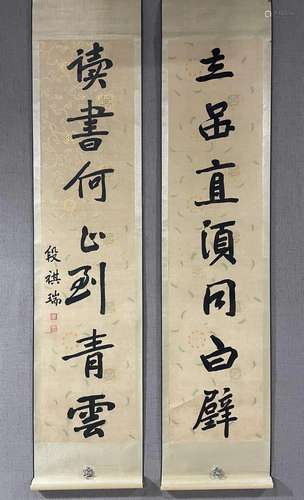 立品直須同白璧
读書何止到青雲
段祺瑞